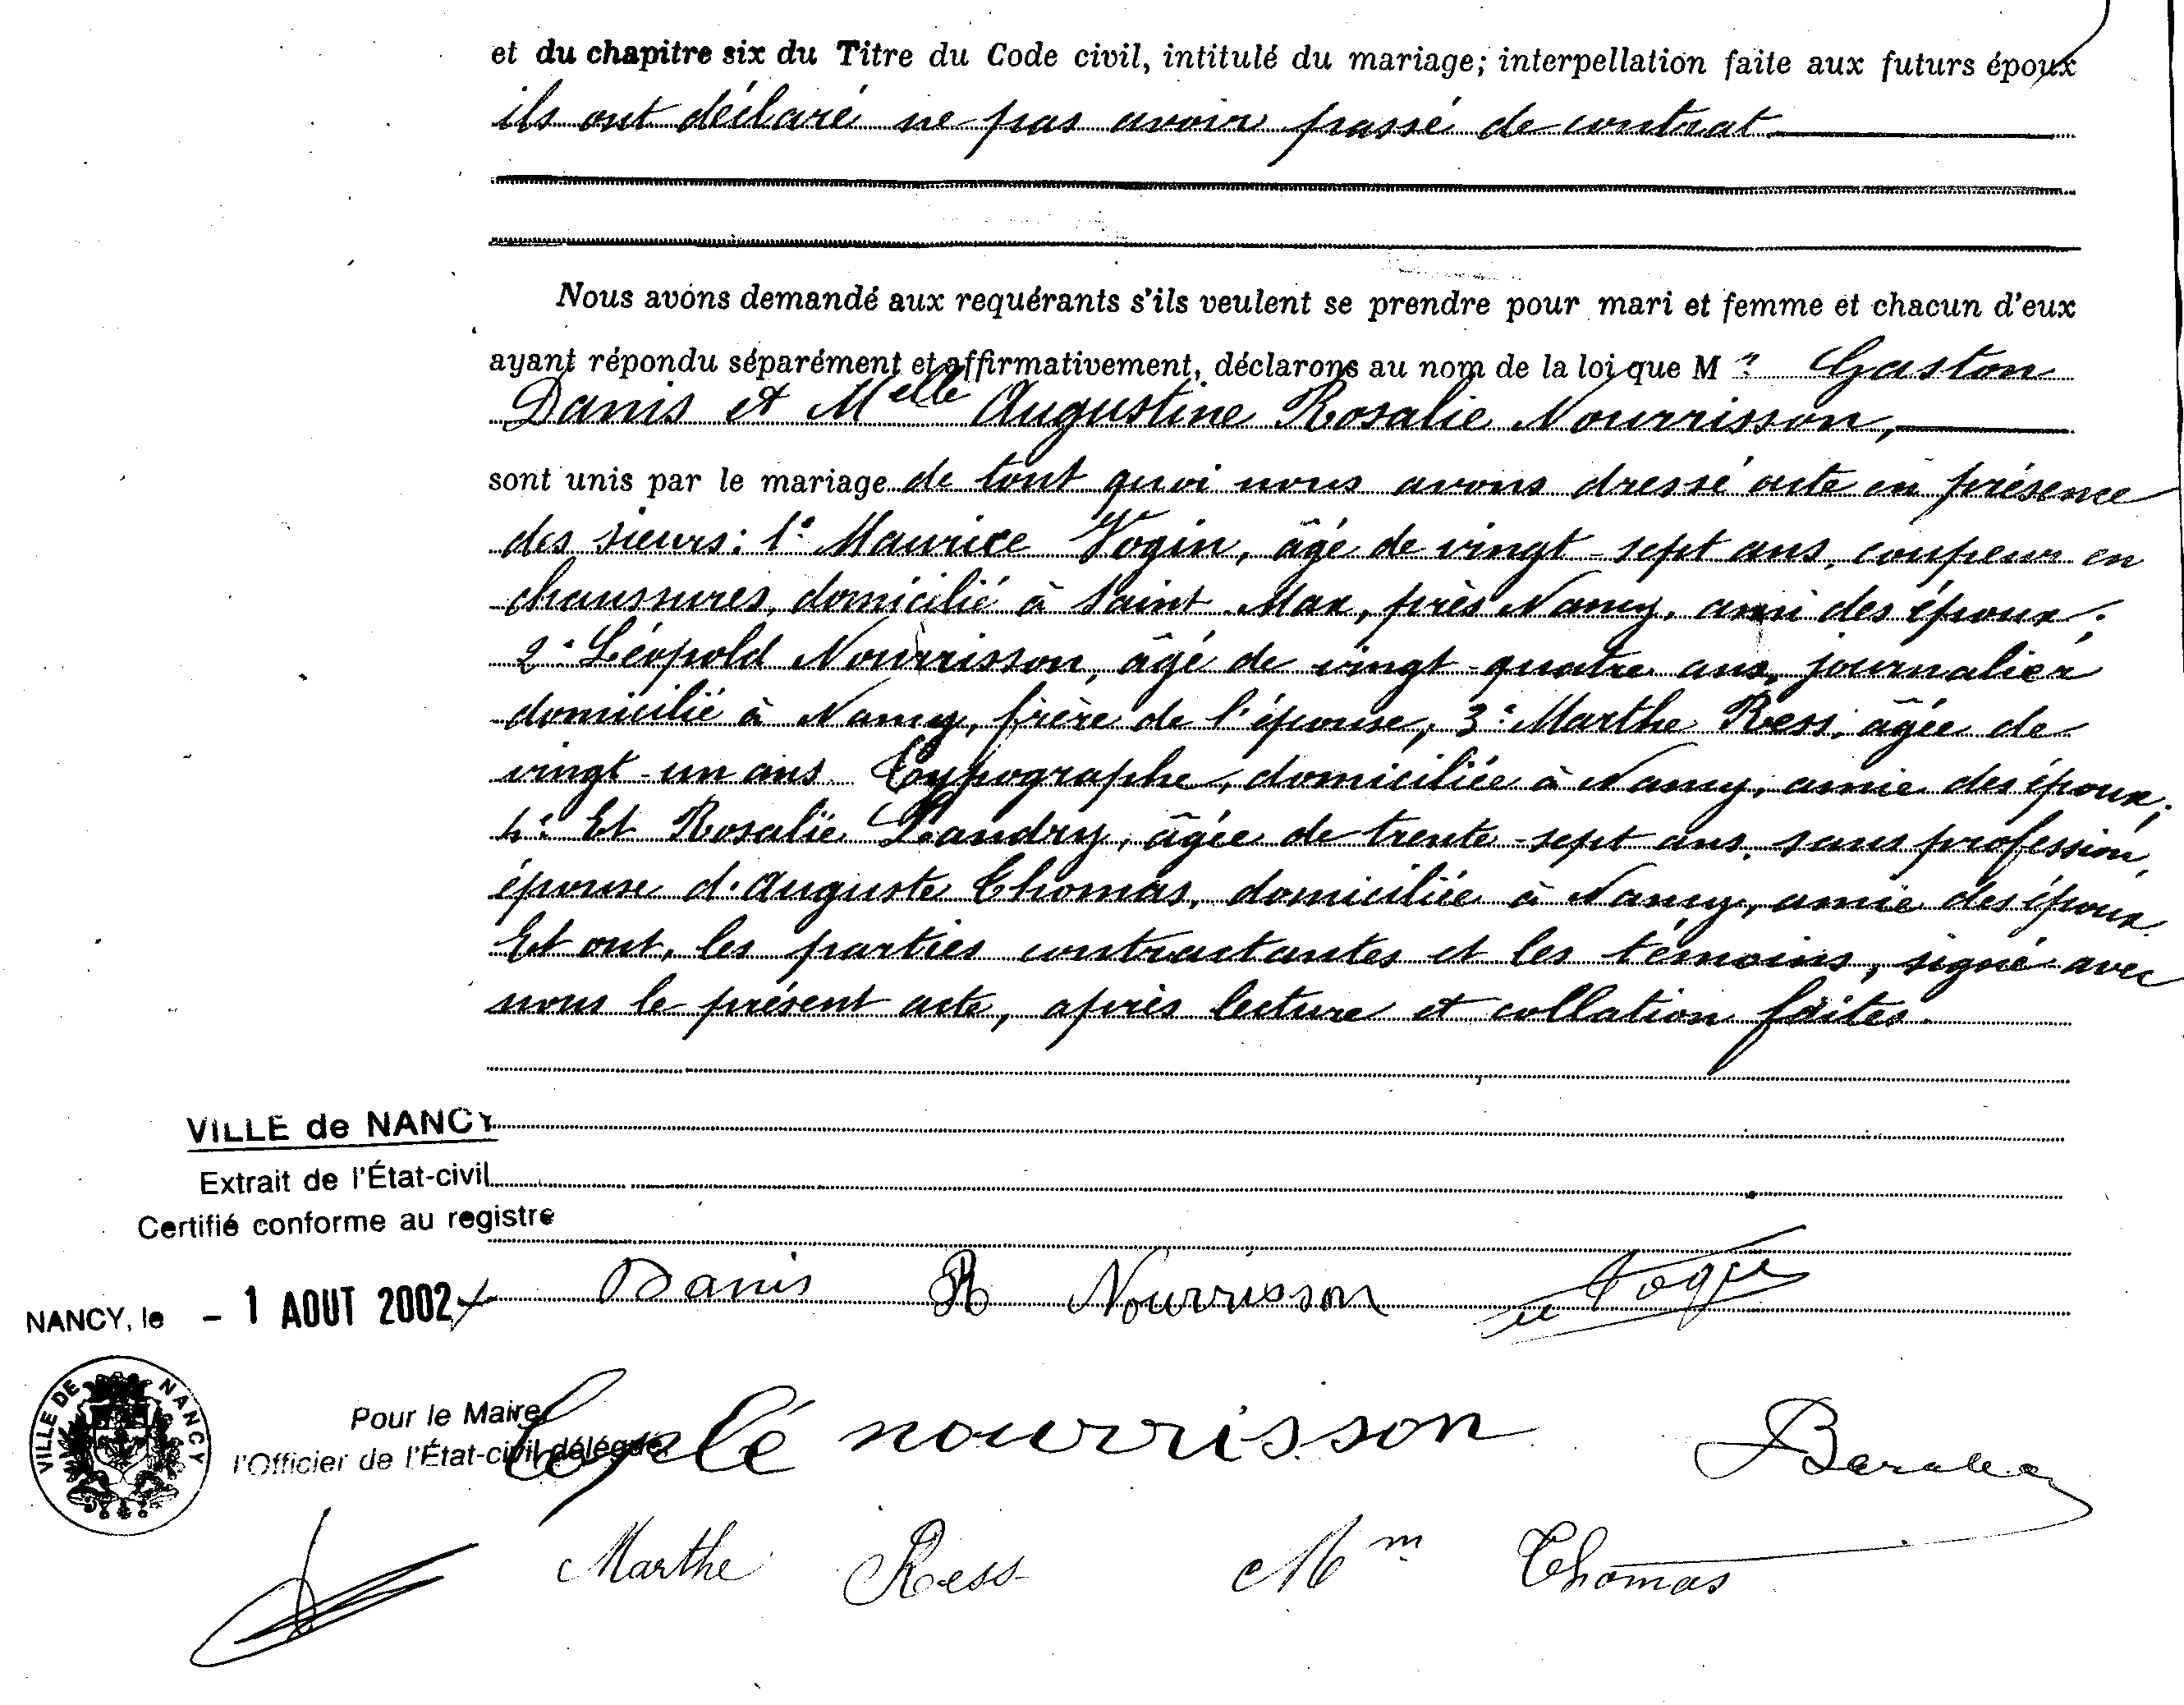 et du chapitre six du Titre du Code civil, intitulé du mariage; interpellation faite aux futurs époux
ils ont déclaré ne pas avoir passé de contrat
Nous avons demandé aux requérants s'ils veulent se prendre pour mari et femme et chacun d'eux
ayant répondu séparément et affirmativement, déclarons au nom de la loi que Mr Gaston
Danis et Melle Augustine Rosalie Nourrisson,
sont unis par le mariage de tout quoi nous avons dressé acte en présence
des sieurs: 1° Maurice Vogin, âgé de vingt-sept ans, coupeur en
chaussures, domicilié à Saint Max, près Nancy, ami des époux;
2° Léopold Nourrisson, âgé de vingt-quatre ans, journalier
domicilié à Nancy, frère de l'épouse; 3° Marthe Ress, âgée de
vingt-un ans Typographe, domiciliée à Nancy, amie des époux;
4° Et Rosalie Landry, âgée de trente-sept ans, sans profession,
épouse d'Auguste Thomas, domiciliée à Nancy, amie des époux.
Et ont, les parties contractantes et les témoins, signé avec
nous le présent acte, après lecture et collation faites.
VILLE de NANCY
Extrait de l'État-civil
Certifié conforme au registre
NANCY, le - 1 AOUT 2002
Danis R Nourrisson Vogin
VILLE DE NANCY
Pour le Maire
l'Officier de l'État-civil délégué
nourrisson
Marthe Ress Mm Thomas